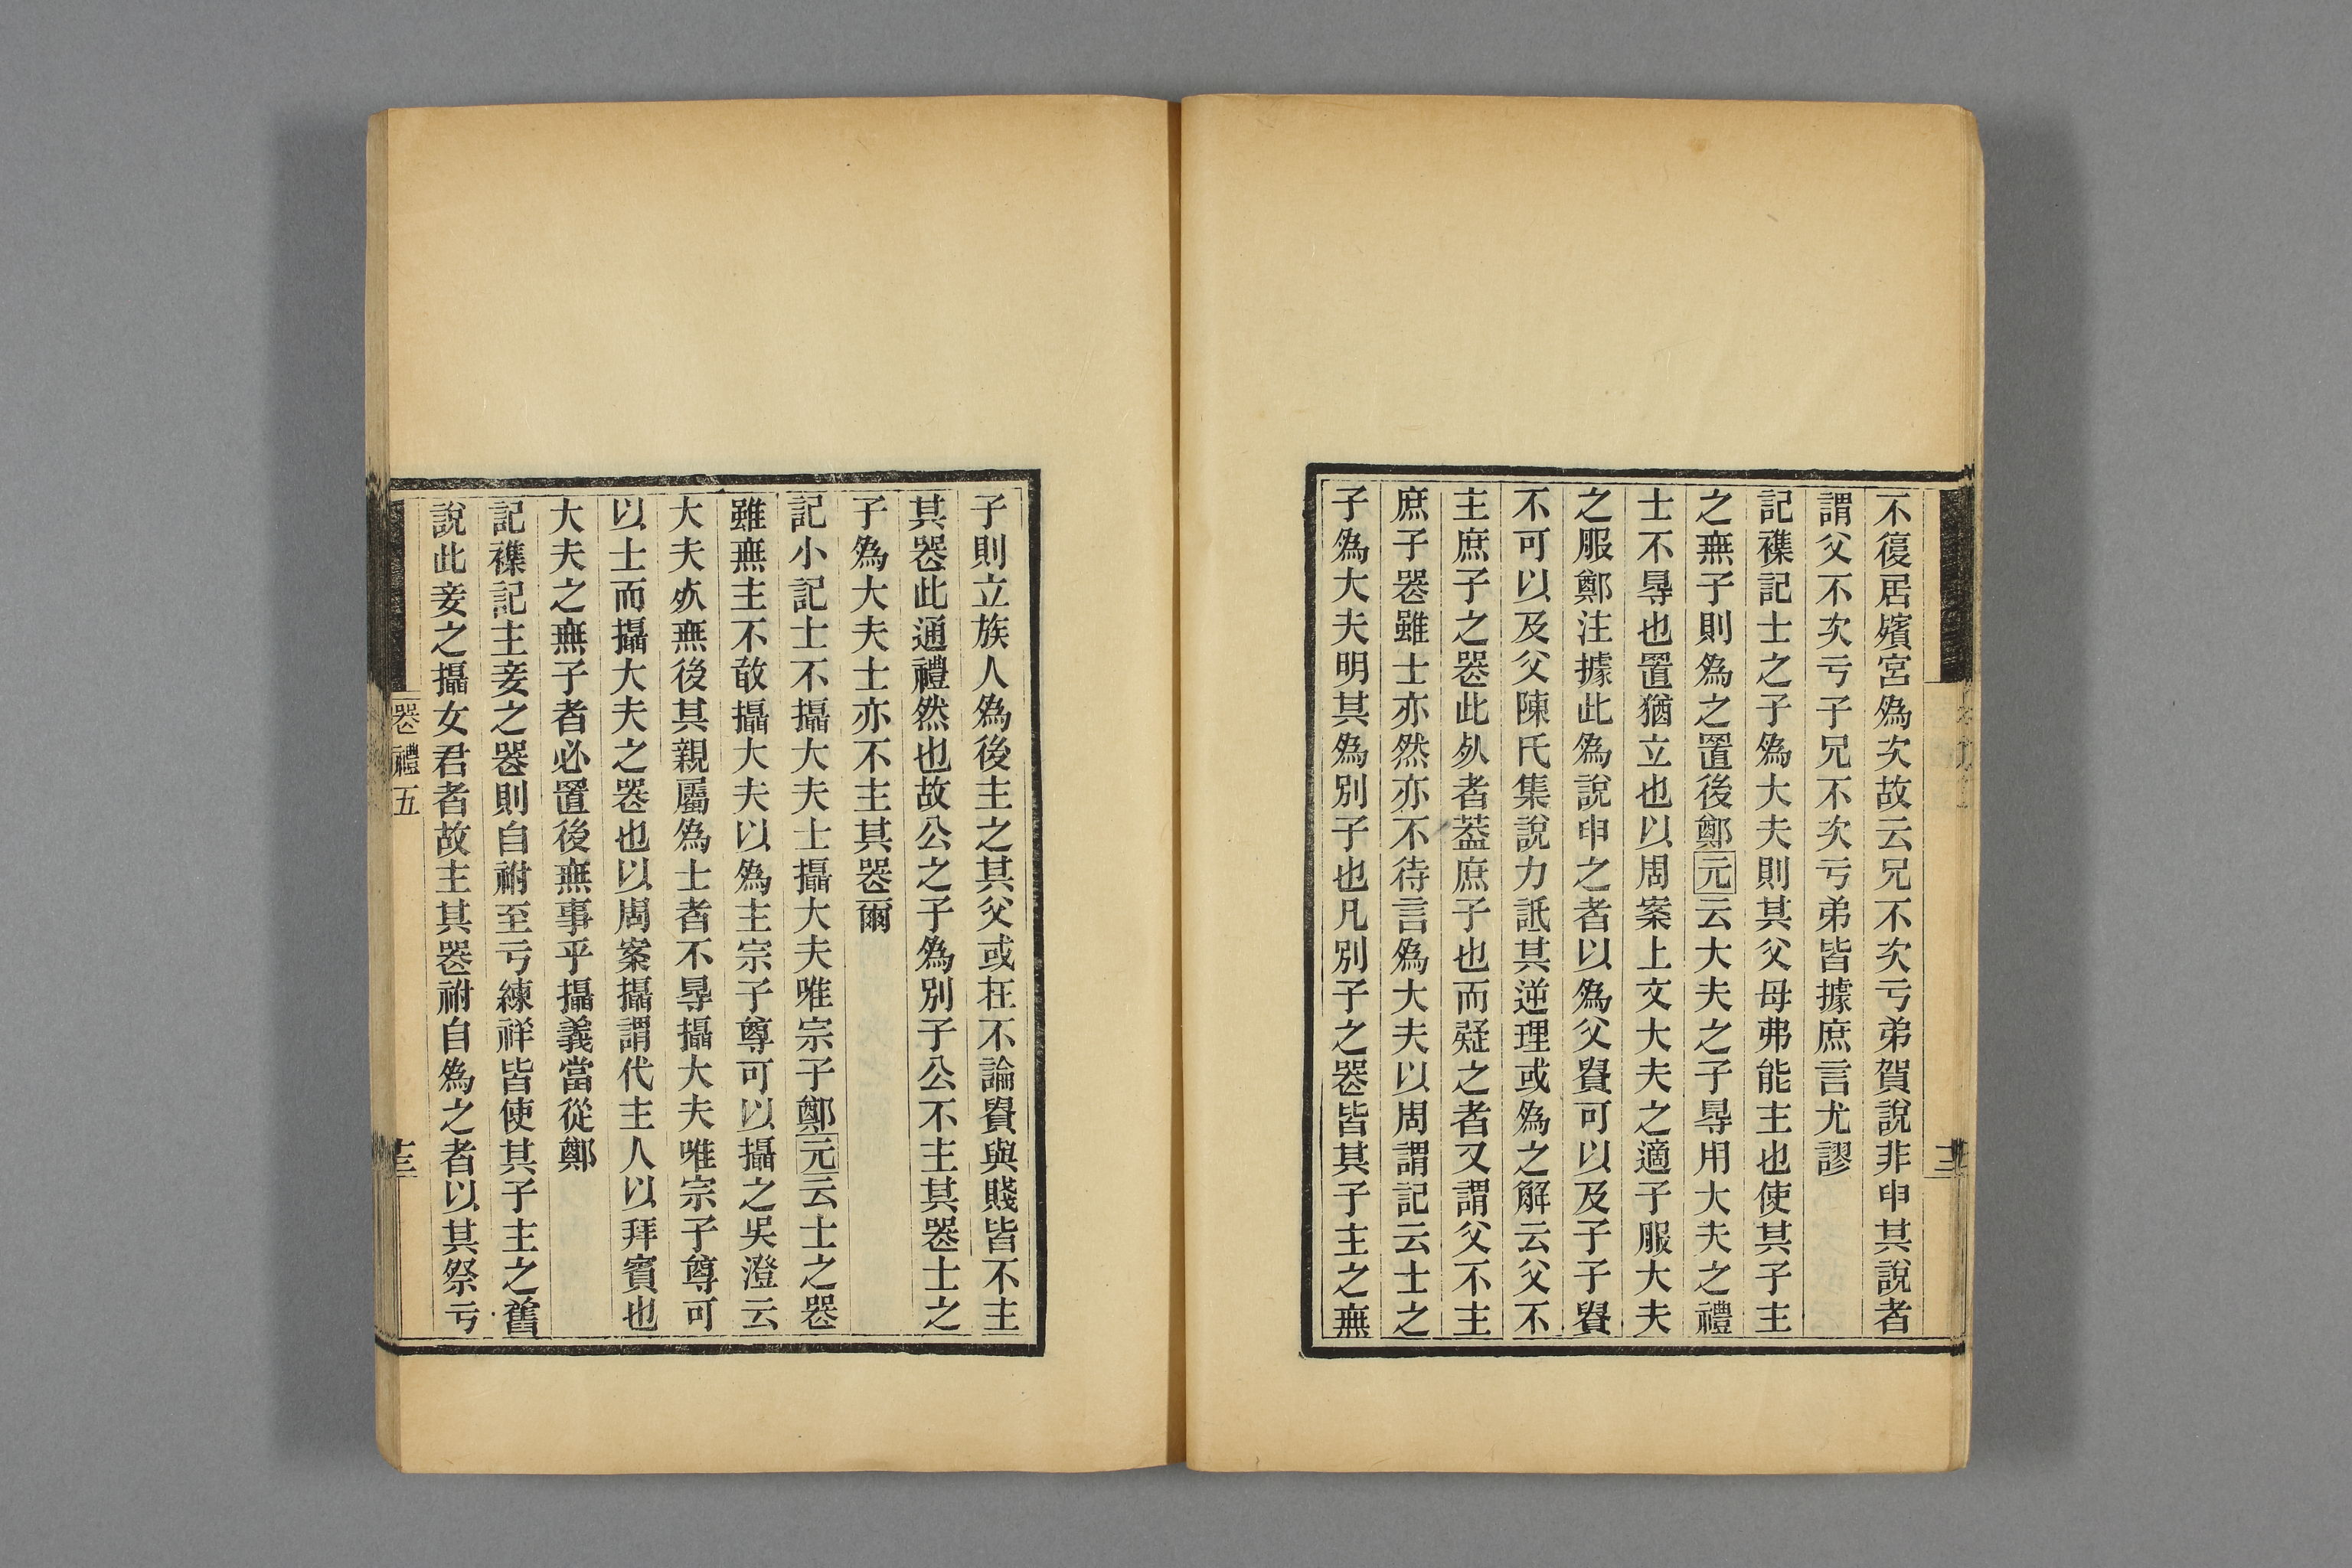 不復居殯宮爲次故云兄不次亏弟賀說非申其說者
謂父不次亏子兄不次亏弟皆據庶言尤謬
記襍記士之子爲大夫則其父母弗能主也使其子主
之無子則爲之置後鄭元云大夫之子㝵用大夫之禮
士不㝵也置猶立也以周案上文大夫之適子服大夫
之服鄭注據此爲說申之者以爲父貴可以及子子貴
不可以及父陳氏集說力詆其逆理或爲之解云父不
主庶子之喪此㱙者葢庶子也而疑之者又謂父不主
庶子喪雖士亦然亦不待言爲大夫以周謂記云士之
子爲大夫明其爲別子也凡別子之喪皆其子主之無
十三
子則立族人爲後主之其父或在不論貴與賤皆不主
其喪此通禮然也故公之子爲別子公不主其喪士之
子爲大夫士亦不主其喪爾
記小記士不攝大夫士攝大夫唯宗子鄭元云士之喪
雖無主不敢攝大夫以爲主宗子尊可以攝之吳澄云
大夫㱙無後其親屬爲士者不㝵攝大夫唯宗子尊可
以士而攝大夫之喪也以周案攝謂代主人以拜賓也
大夫之無子者必置後無事乎攝義當從鄭
記襍記主妾之喪則自祔至亏練祥皆使其子主之舊
說此妾之攝女君者故主其喪祔自爲之者以其祭亏
喪禮五
十三